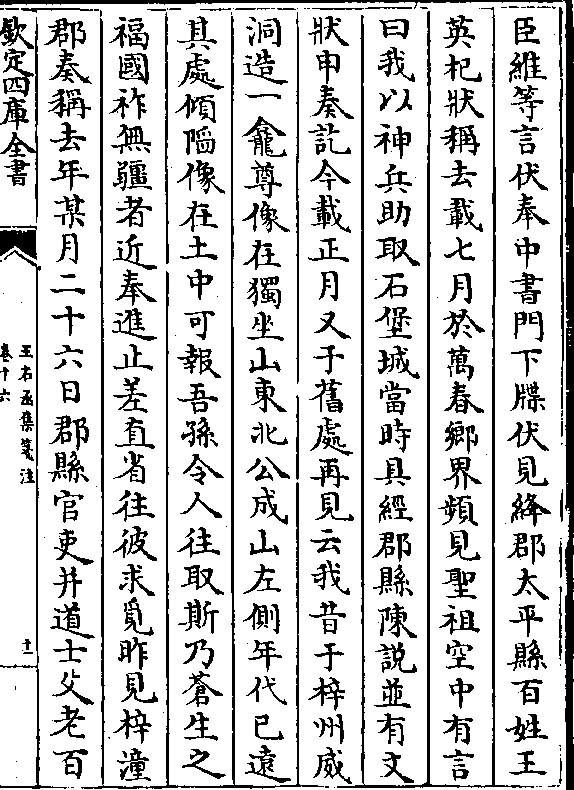 臣維等言伏奉中書門下牒伏見絳郡太平縣百姓王
英杞狀稱去載七月於萬春鄉界頻見聖祖空中有言
曰我以神兵助取石堡城當時具經郡縣陳說並有文
狀申奏訖今載正月又于舊處再見云我昔于梓州威
洞造一龕尊像在獨坐山東北公成山左側年代已遠
其處傾陷像在土中可報吾孫令人往取斯乃蒼生之
福國祚無疆者近奉進止差直省往彼求覓昨見梓潼
郡奏稱去年某月二十六日郡縣官吏并道士父老百
欽定四庫全書
王右丞集箋注
卷十六
十一